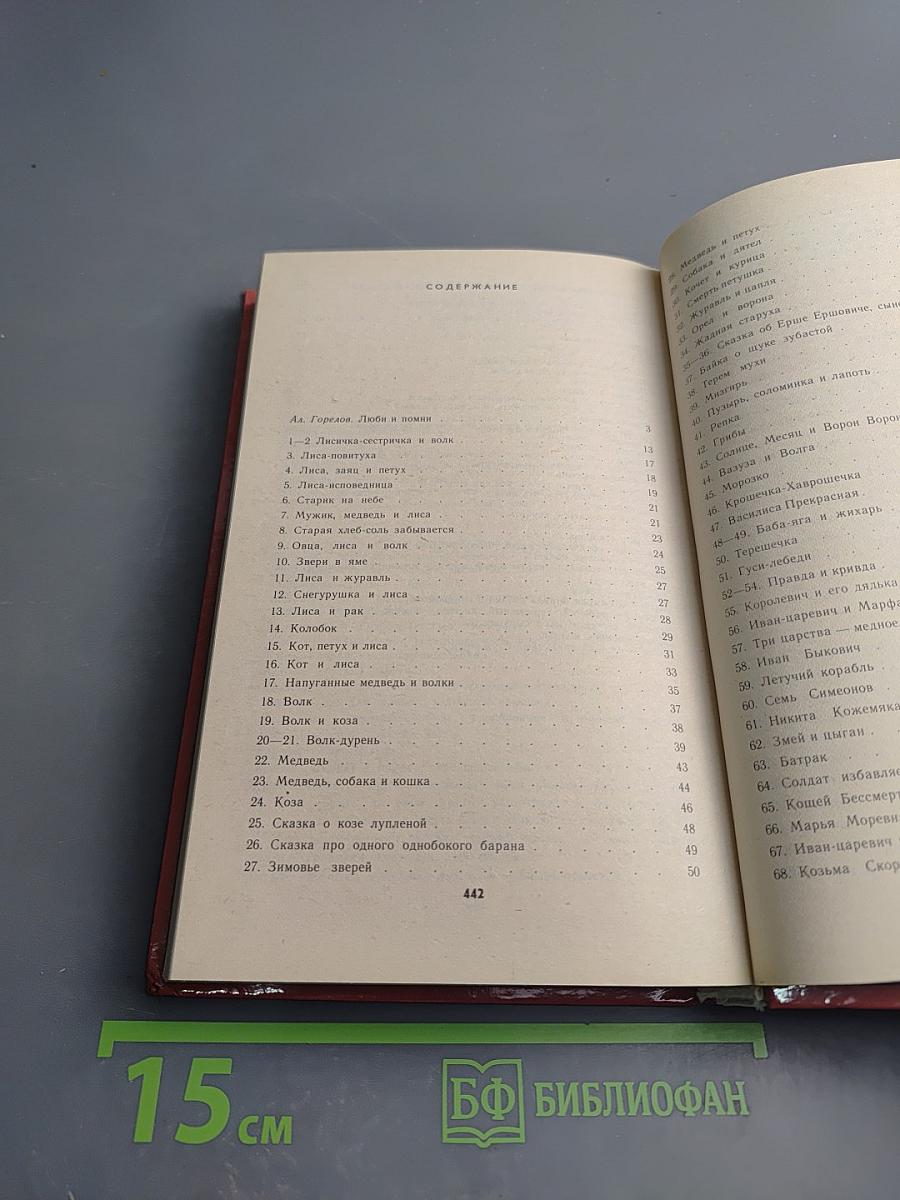 СОДЕРЖАНИЕ
Ал. Горелов. Люби и помни . . . 3
1—2 Лисичка-сестричка и волк . . . 13
3. Лиса-повитуха . . . 17
4. Лиса, заяц и петух . . . 18
5. Лиса-исповедница . . . 19
6. Старик на небе . . . 21
7. Мужик, медведь и лиса . . . 21
8. Старая хлеб-соль забывается . . . 23
9. Овца, лиса и волк . . . 24
10. Звери в яме . . . 25
11. Лиса и журавль . . . 27
12. Снегурушка и лиса . . . 27
13. Лиса и рак . . . 28
14. Колобок . . . 29
15. Кот, петух и лиса . . . 31
16. Кот и лиса . . . 33
17. Напуганные медведь и волки . . . 35
18. Волк . . . 37
19. Волк и коза . . . 38
20—21. Волк-дурень . . . 39
22. Медведь . . . 43
23. Медведь, собака и кошка . . . 44
24. Коза . . . 46
25. Сказка о козе лупленой . . . 48
26. Сказка про одного однобокого барана . . . 49
27. Зимовье зверей . . . 50
442
28. Медведь и петух
29. Собака и дятел
30. Кочет и курица
31. Смерть петушка
32. Журавль и цапля
33. Орел и ворона
34. Жадная старуха
35—36. Сказка об Ерше Ершовиче, сыне
37. Байка о щуке зубастой
38. Терем мухи
39. Мизгирь
40. Пузырь, соломинка и лапоть
41. Репка
42. Грибы
43. Солнце, Месяц и Ворон Ворон
44. Вазуза и Волга
45. Морозко
46. Крошечка-Хаврошечка
47. Василиса Прекрасная
48—49. Баба-яга и жихарь
50. Терешечка
51. Гуси-лебеди
52—54. Правда и кривда
55. Королевич и его дядька
56. Иван-царевич и Марфа
57. Три царства — медное,
58. Иван Быкович
59. Летучий корабль
60. Семь Симеонов
61. Никита Кожемяка
62. Змей и цыган
63. Батрак
64. Солдат избавляе
65. Кощей Бессмерт
66. Марья Моревн
67. Иван-царевич
68. Козьма Скор
15 см
БФ БИБЛИОФАН